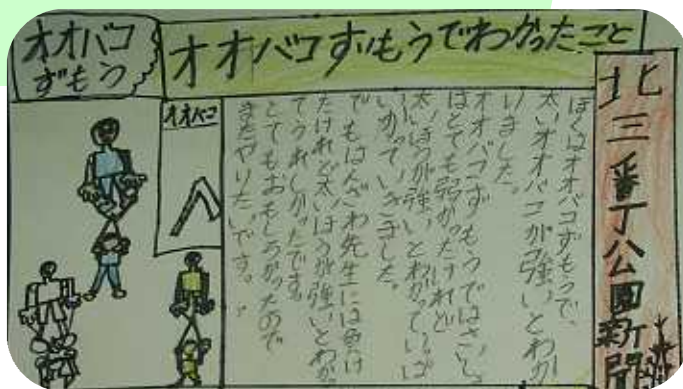 北三番丁公園新聞
オオバコずもうでわかったこと
オオバコ
ずもう
オオバコ
ぼくはオオバコずもうで、
太いオオバコが強いとわか
りました。
オオバコずもうではさいしょ
はとても弱かったけれど
太いほうが強いとわかっていっぱ
いかっていきました。
でもはんざわ先生には負け
たけれど太いほうが強いとわかっ
てうれしかったです。
とてもおもしろかったので
またやりたいです。